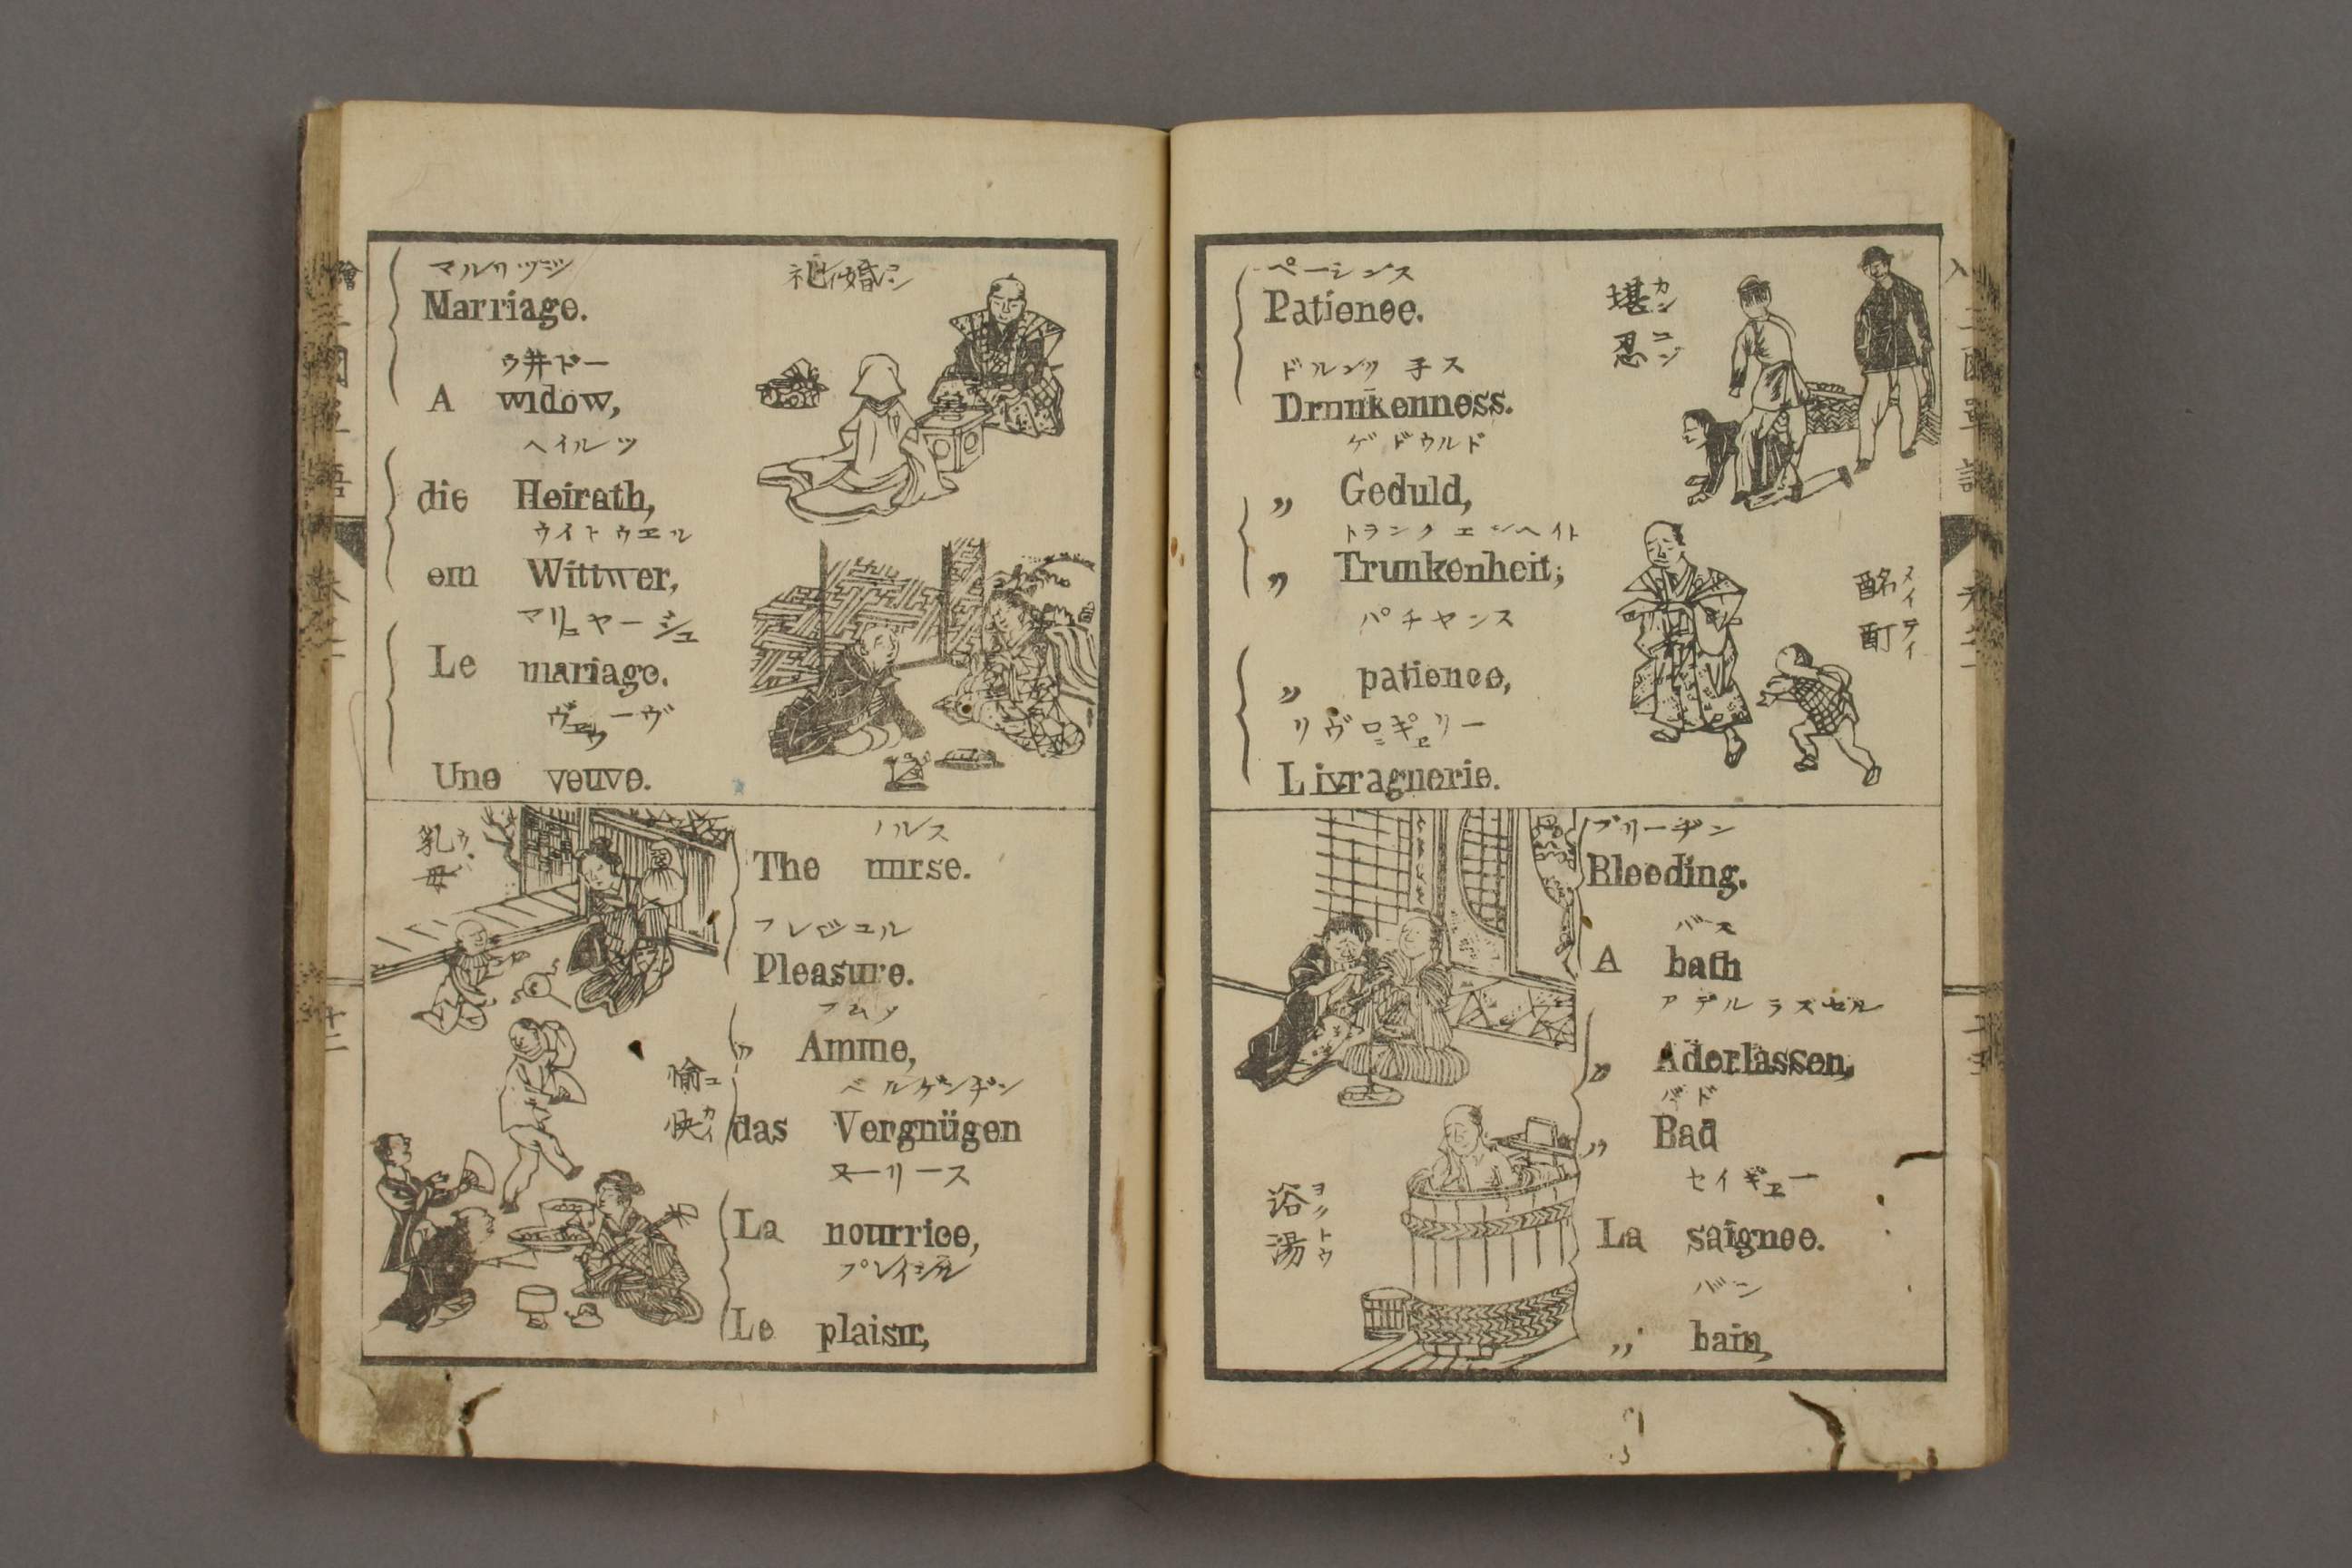 マルリツジ
Marriage.
ウ井ドー
A widow,
ヘイルツ
die Heirath,
ウイトウエル
em Wittwer,
マリュヤージュ
Le mariage.
ヴェウーヴ
Une veuve.
婚コン礼
乳母ウバ
愉ユ快カイ
ノルス
The nurse.
フレジユル
Pleasure.
アムメ
„ Amme,
ベルゲンギン
das Vergnügen
ヌーリース
La nourrice,
プレイジル
Le plaisir,
ペーシンス
Patience.
ドルンク子ス
Drnnkenness.
ゲドウルド
„ Geduld,
トランクエンヘイト
„ Trunkenheit;
パチヤンス
„ patience,
リヴロギェリー
Livragnerie.
堪カン忍ニン
酩メイ酊テイ
ブリーヂン
Bleeding.
バス
A bath
アデルラスセル
„ Aderlassen,
バド
„ Bad
セイギェー
La saignee.
バン
„ bain,
浴ヨク湯トウ